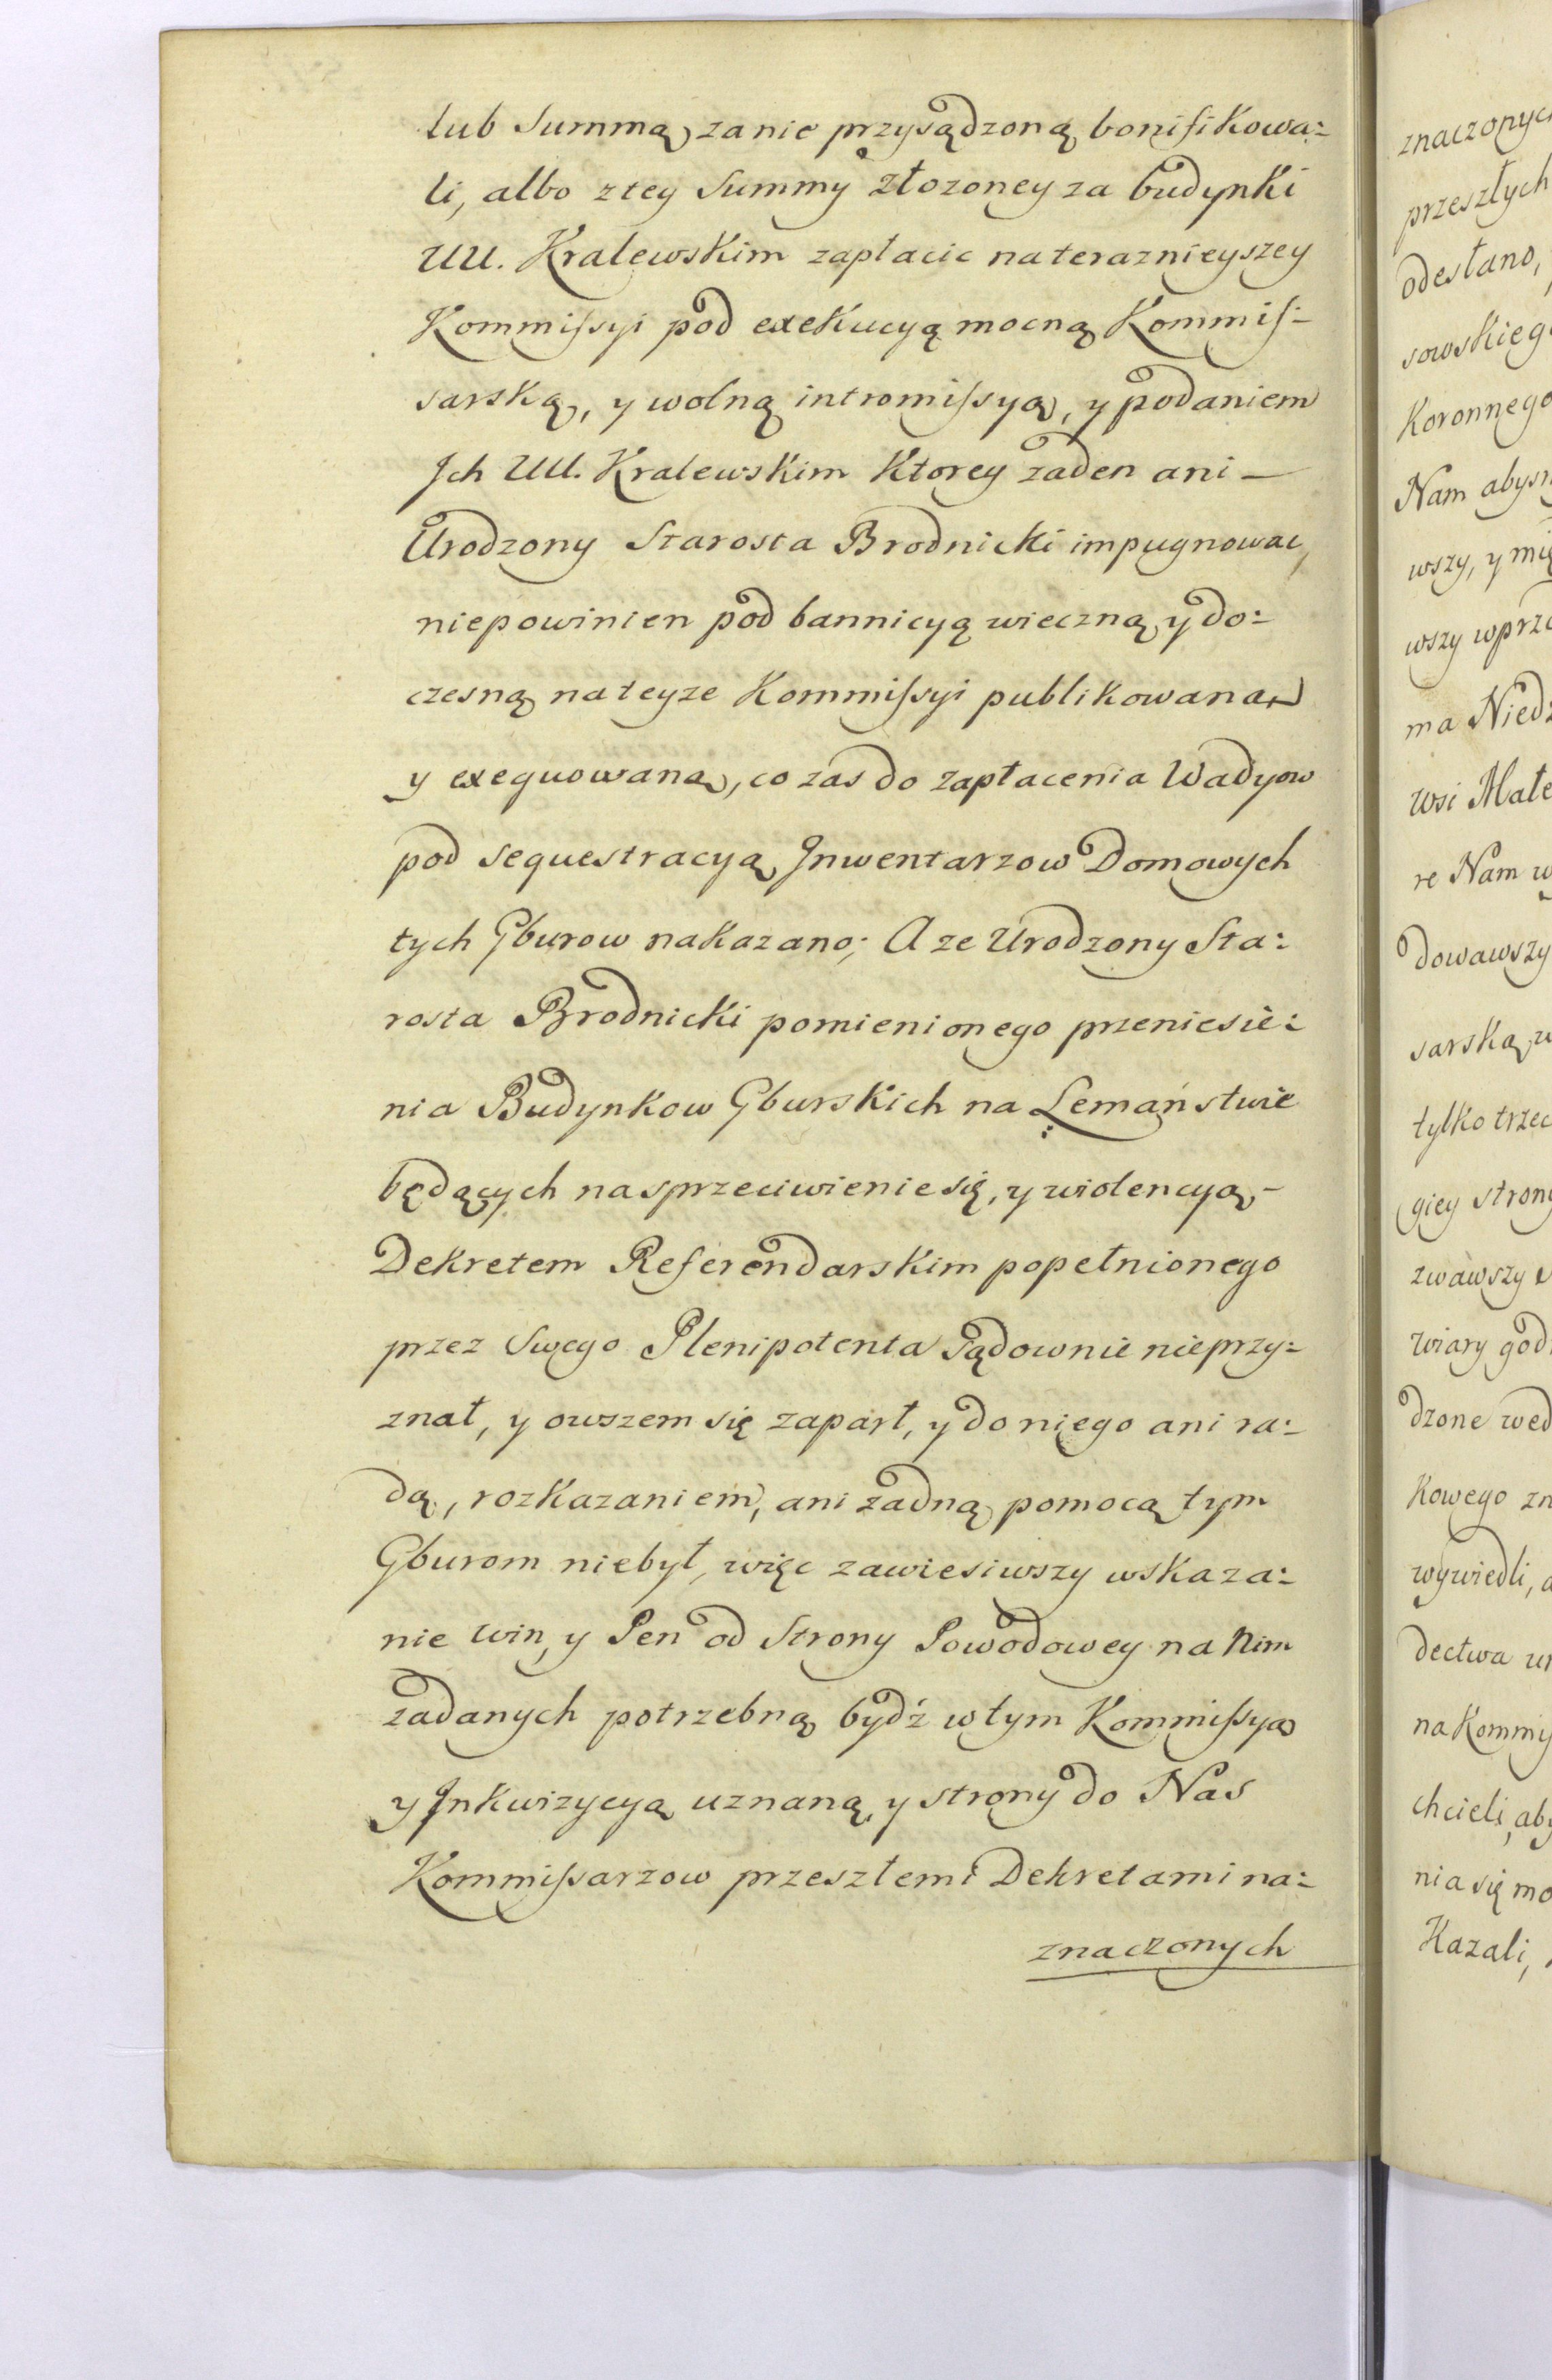 lub Summą zanie przysądzoną bonifikowa:
li, albo z tey Summy złozoney za budynki
UU. Kralewskim zapłacic na teraznieyszey
Kommiſsyi pod exekucyą mocną Kommiſ:
sarską, y wolną intromiſsyą, y podaniem
Jch UU. Kralewskim Ktorey zaden ani —
Urodzony Starosta Brodnicki impugnowac
niepowinien pod bannicyą wieczną y do:
czesną na teyze Kommiſsyi publikowaną
y exequowaną, co zas do zapłacenia Wadyow
pod sequestracyą Jnwentarzow Domowych
tych Gburow nakazano; A ze Urodzony Sta:
rosta Brodnicki pomienionego przeniesie:
nia Budynkow Gburskich na Lemaństwie
będących na sprzeciwienie się, y wiolencyą –
Dekretem Referendarskim popełnionego
przez Swego Plenipotenta Sądownie nieprzy:
znał, y owszem się zaparł, y do niego ani ra:
dą, rozkazaniem, ani zadną pomocą tym
Gburom niebył, więc zawiesiwszy wskaza:
nie win, y Pen od Strony Powodowey na Nim
zadanych potrzebną bydź w tym Kommiſsyą
y Jnkwizycyą uznaną, y strony do Nas
Kommiſsarzow przeszłemi Dekretami na:
znaczonych
znaczonych
przeszłych
odesłano,
sowskieg
Koronnego
Nam abysm
wszy, y mię
wszy wprz
ma Niedz
wsi Małe
re Nam w
dowawszy
sarską w
tylko trzec
giey strony
zwawszy
wiary god
dzone wed
kowego zn
wywiedli, a
dectwa ur
na Kommiſ
chcieli, aby
nia się mo
Kazali,